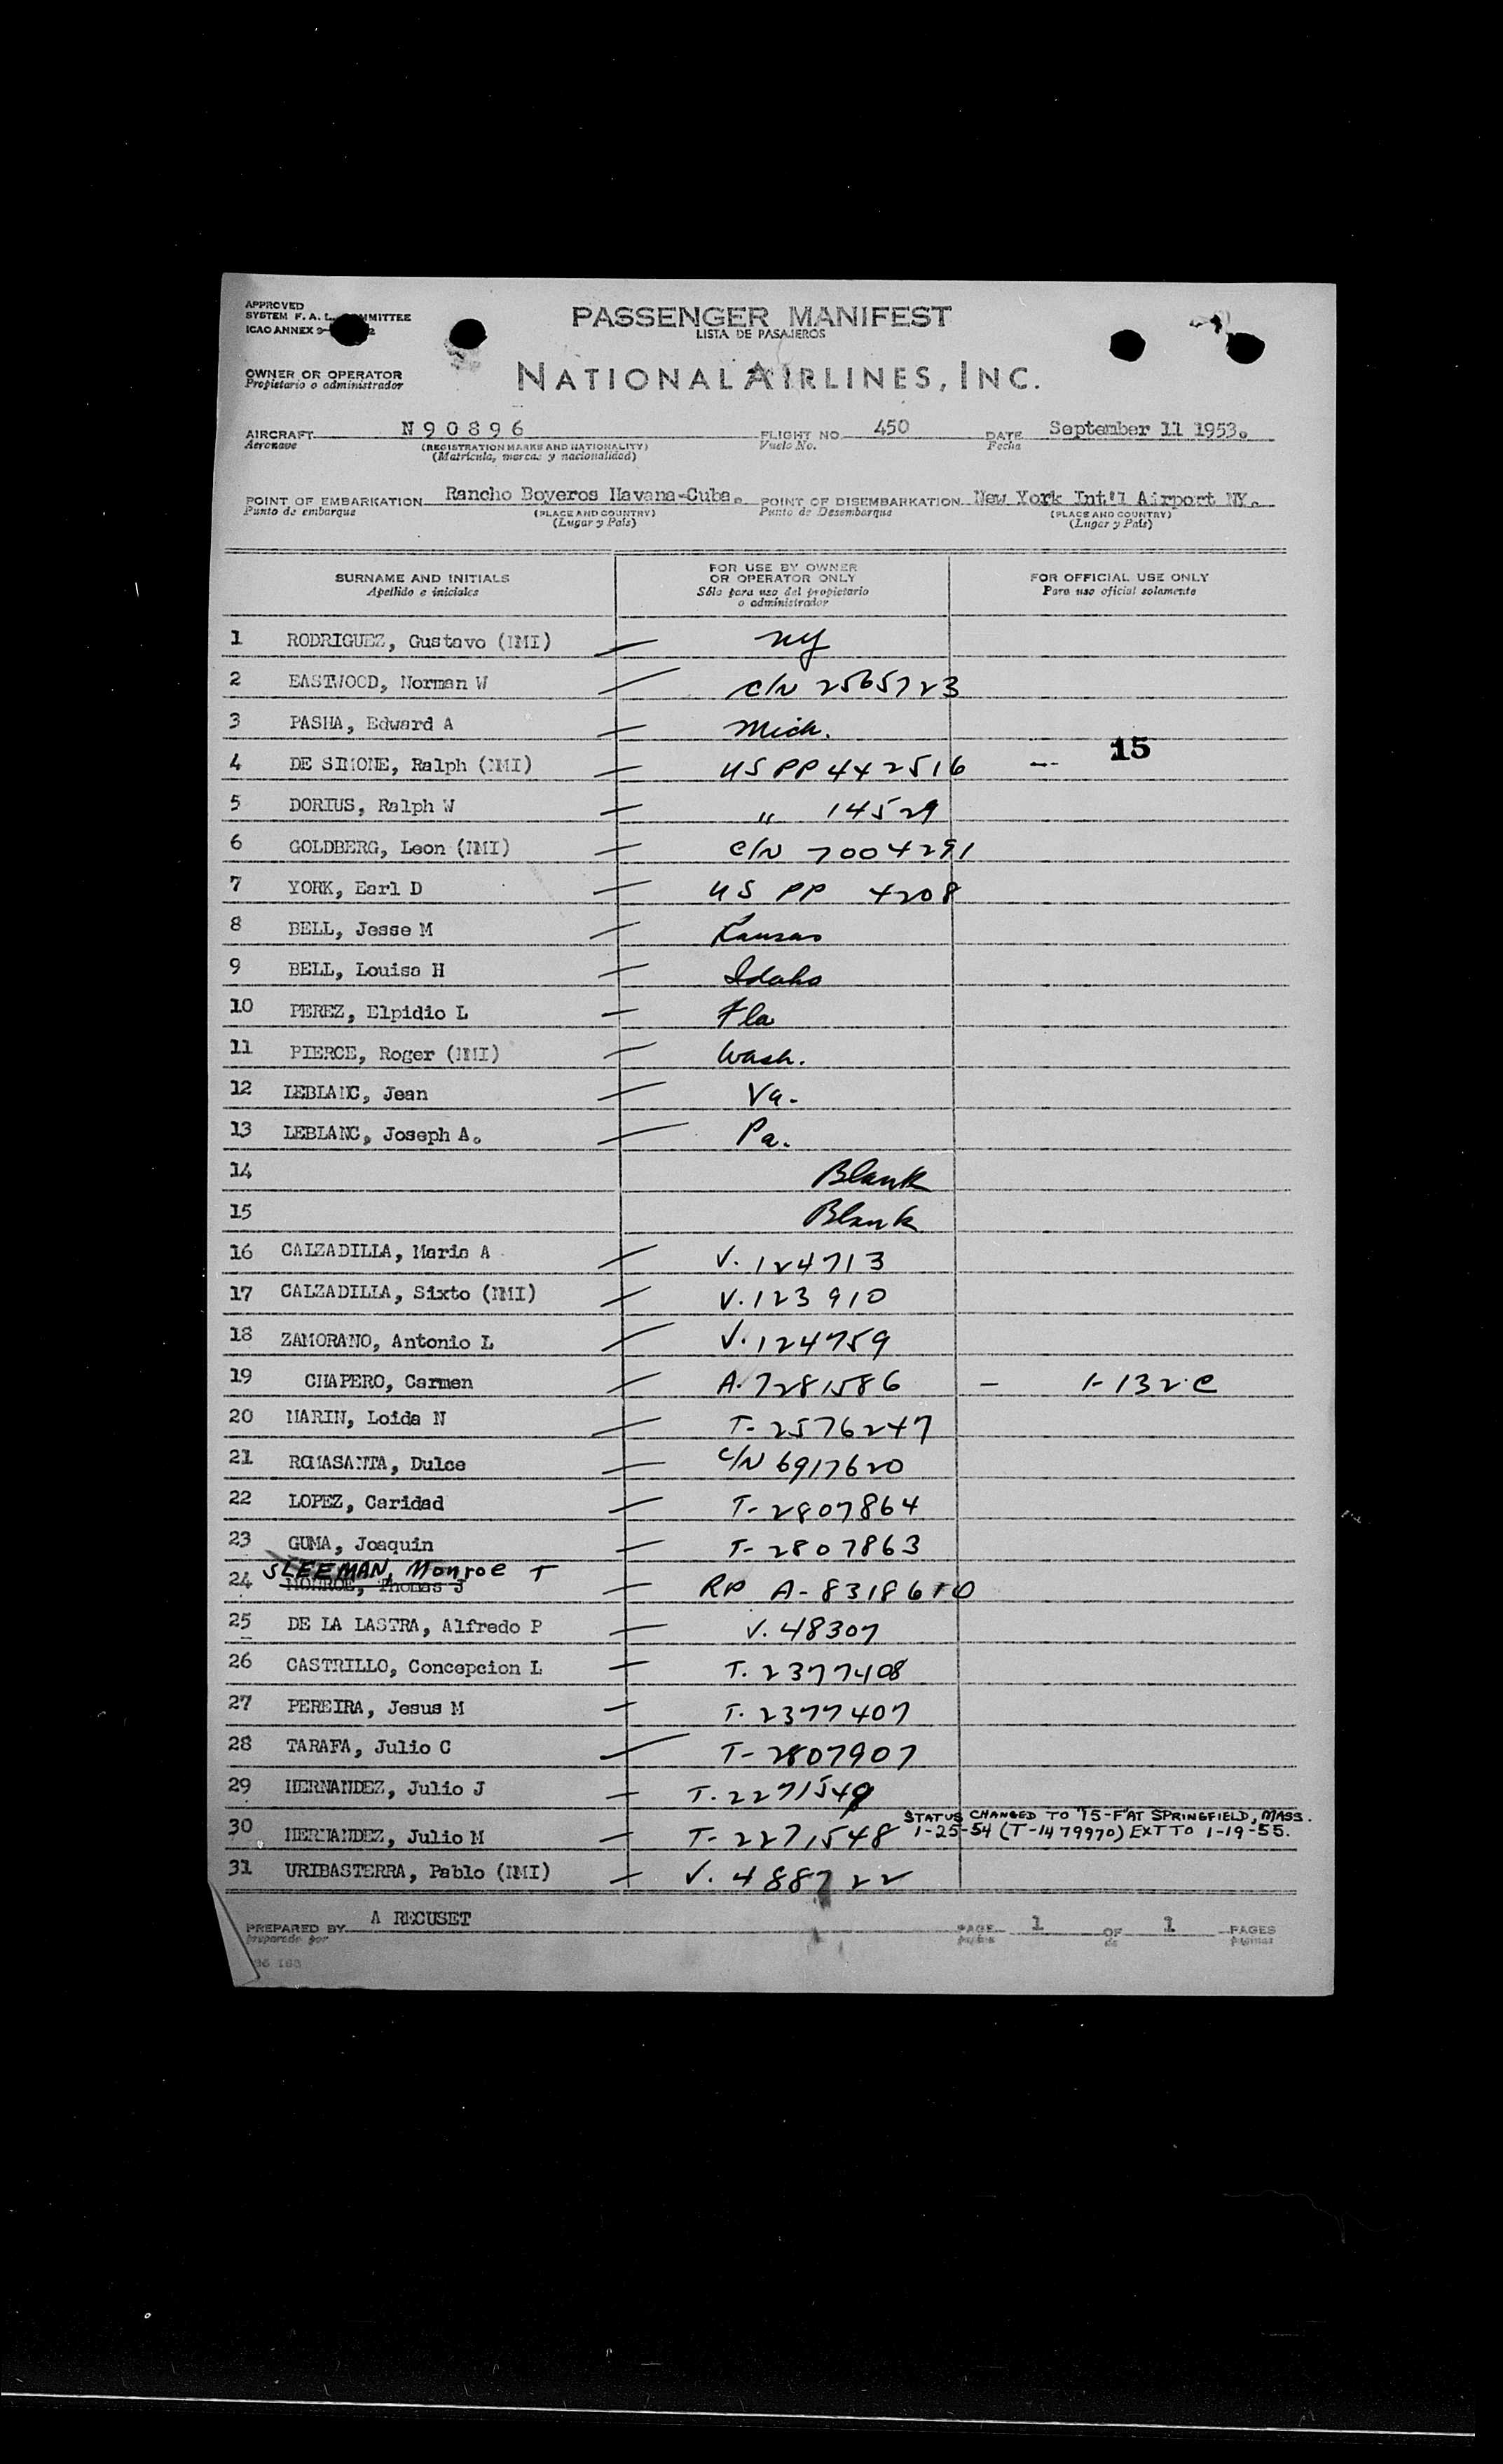 APPROVED
SYSTEM F. A. L. COMMITTEE
ICAO ANNEX 9-
PASSENGER MANIFEST
LISTA DE PASAJEROS
OWNER OR OPERATOR
Propietario o administrador
NATIONAL AIRLINES, INC.
AIRCRAFT N90896 FLIGHT NO. 450 DATE September 11 1953.
Aeronave (REGISTRATION MARKS AND NATIONALITY) Vuelo No. Fecha
(Matricula, marcas y nacionalidad)
POINT OF EMBARKATION Rancho Boyeros Havana-Cuba. POINT OF DISEMBARKATION New York Int'l Airport NY.
Punto de embarque (PLACE AND COUNTRY) Punto de Desembarque (PLACE AND COUNTRY)
(Lugar y País) (Lugar y País)
SURNAME AND INITIALS FOR USE BY OWNER OR OPERATOR ONLY FOR OFFICIAL USE ONLY
Apellido e iniciales Sólo para uso del propietario o administrador Para uso oficial solamente
1 RODRIGUEZ, Gustavo (NMI) — NY
2 EASTWOOD, Norman W — C/N 2565723
3 PASHA, Edward A — Mich.
4 DE SIMONE, Ralph (NMI) — US PP 442516 — 15
5 DORIUS, Ralph W — " 14529
6 GOLDBERG, Leon (NMI) — C/N 7004291
7 YORK, Earl D — US PP 4208
8 BELL, Jesse M — Kansas
9 BELL, Louisa H — Idaho
10 PEREZ, Elpidio L — Fla
11 PIERCE, Roger (NMI) — Wash.
12 LEBLANC, Jean — Va.
13 LEBLANC, Joseph A. — Pa.
14 Blank
15 Blank
16 CALZADILLA, Maria A — V. 124713
17 CALZADILLA, Sixto (NMI) — V. 123910
18 ZAMORANO, Antonio L — V. 124759
19 CHAPERO, Carmen — A. 7281586 — 1-132.C
20 MARIN, Loida N — T- 2576247
21 ROMASANTA, Dulce — C/N 6917620
22 LOPEZ, Caridad — T- 2807864
23 GUMA, Joaquin — T- 2807863
SLEEMAN, Monroe T
24 MONROE, Thomas J — RP A-8318610
25 DE LA LASTRA, Alfredo P — V. 48307
26 CASTRILLO, Concepcion L — T. 2377408
27 PEREIRA, Jesus M — T. 2377407
28 TARAFA, Julio C — T- 2807907
29 HERNANDEZ, Julio J — T. 2271549
STATUS CHANGED TO "15-F" AT SPRINGFIELD, MASS.
30 HERNANDEZ, Julio M — T- 2271548 1-25-54 (T-1479970) EXT TO 1-19-55.
31 URIBASTERRA, Pablo (NMI) — V. 488722
PREPARED BY A RECUSET PAGE 1 OF 1 PAGES
preparado por página de páginas